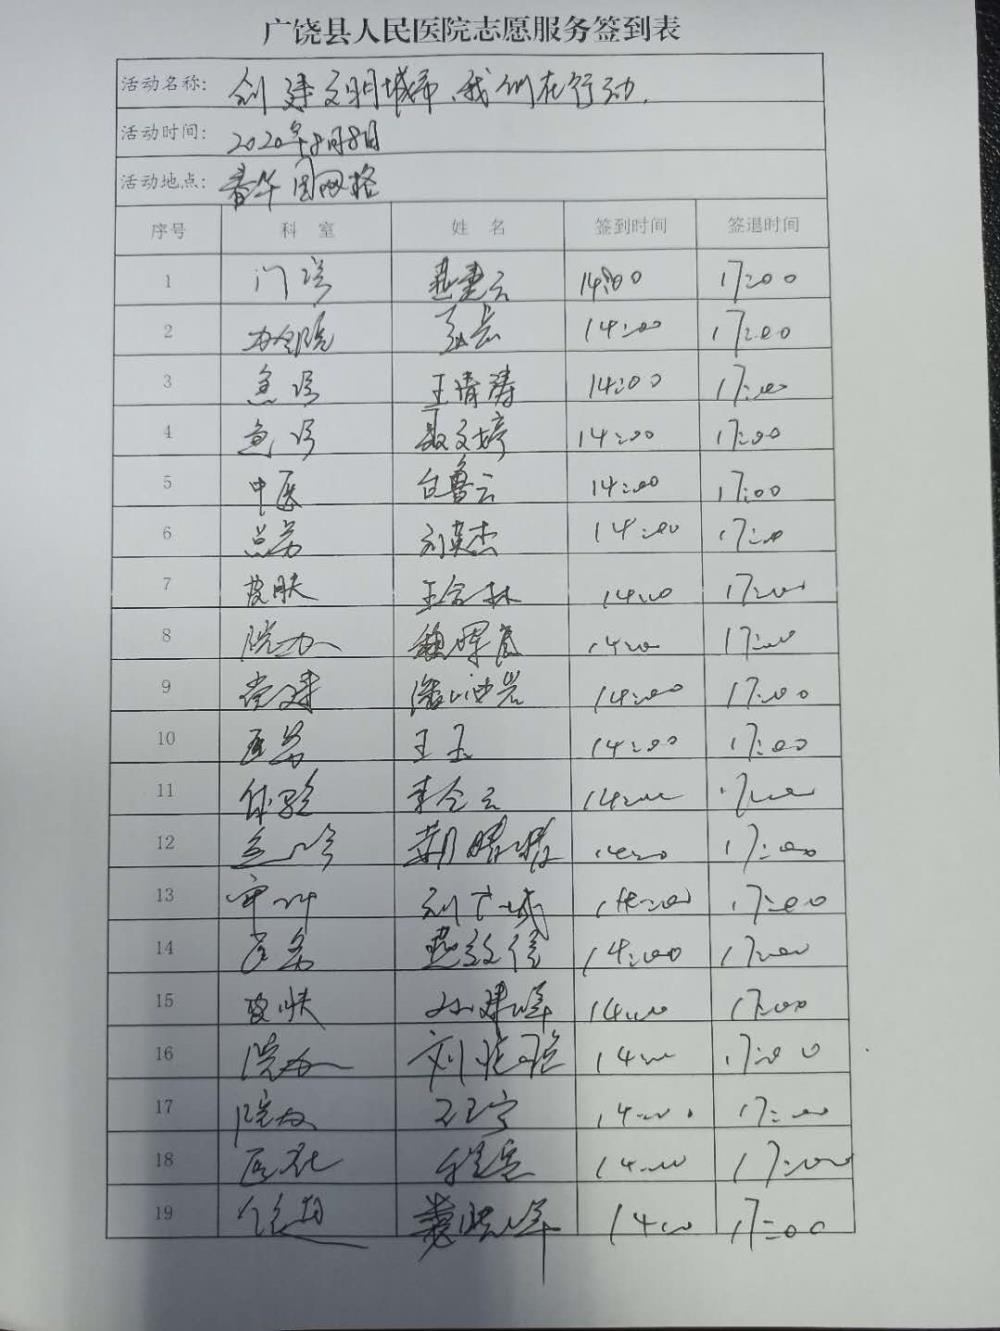 广饶县人民医院志愿服务签到表
活动名称: 创建文明城市,我们在行动.
活动时间: 2020年8月8日
活动地点: 春华园网格
序号 科 室 姓 名 签到时间 签退时间
1 门诊 燕建云 14:00 17:00
2 14:00 17:00
3 急诊 王清涛 14:00 17:00
4 急诊 聂文婷 14:00 17:00
5 中医 白鲁云 14:00 17:00
6 总务 刘英杰 14:00 17:00
7 皮肤 王合林 14:00 17:00
8 院办 14:00 17:00
9 党建 14:00 17:00
10 医务 王玉 14:00 17:00
11 体检 李会云 14:00 17:00
12 14:00 17:00
13 审计 刘广城 14:00 17:00
14 医务 燕效信 14:00 17:00
15 皮肤 孙建峰 14:00 17:00
16 院办 14:00 17:00
17 14:00 17:00
18 14:00 17:00
19 14:00 17:00